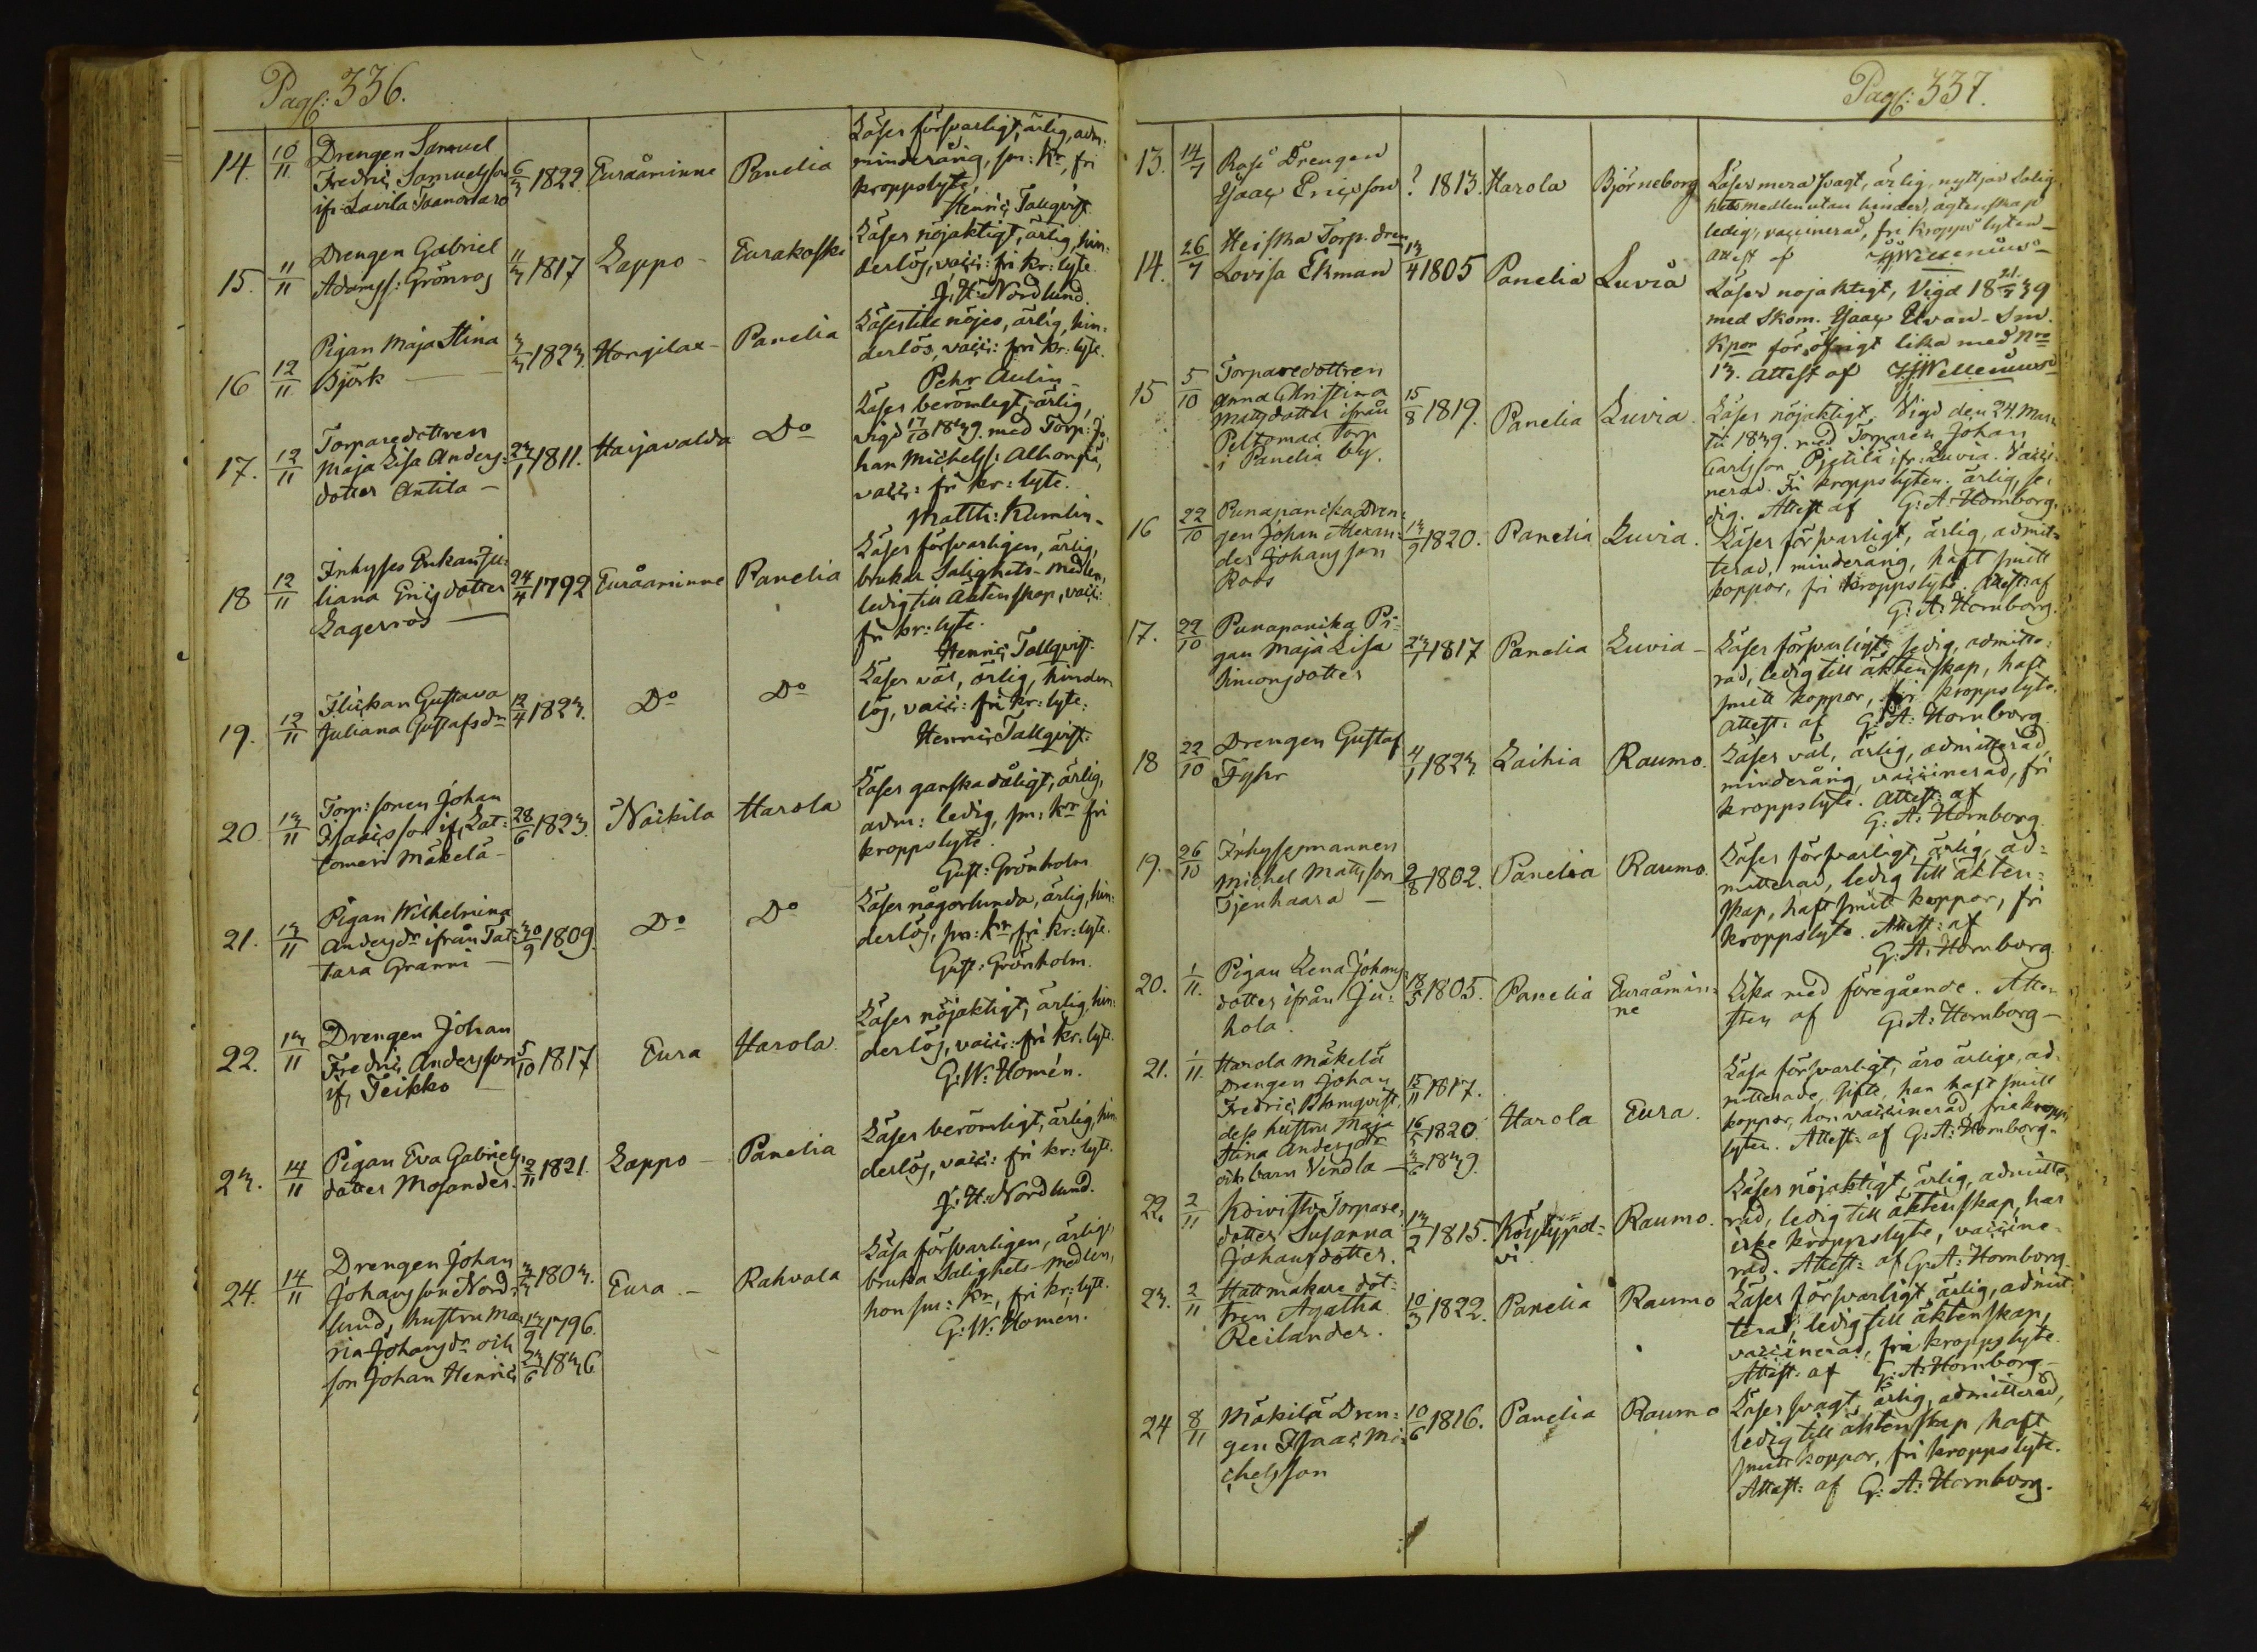 Pag: 336.
14. 10/11 Drengen Samuel Fredric Samuelsson if: Lavila 6/3 1822. Euraåminne Panelia Läser försvarligt, ärlig, adm: minderårig, sm: kr, fri kroppslyte.
Henric Tallqvist
15. 11/11 Drengen Gabriel Adamss: Grönros 11/3 1817 Lappo - Eurakoski Läser nöjaktigt, ärlig, hin-
derlös, vacc: fri kr: lyte.
J. H: Nordlund.
16 12/11 Pigan Maja Stina Björk — 3/3 1823. Hongilax - Panelia Läser till nöjes, ärlig, hin-
derlös, vacc: fri kr: lyte.
Pehr Aulin -
17. 12/11 Torparedottren Maja Lisa Anders-
dotter Antila - 23/1 1811. Harjavalda Do Läser berömligt, ärlig,
vigd 17/10 1839. med Torp: Jo-
han Michelss: Alhonpä,
vacc: fri kr: lyte.
Matth: Kumlin -
18 12/11 Inhyses Enkan Ju-
liana Ericsdotter
Lagerros — 24/4 1792 Euråaminne Panelia Läser försvarligen, ärlig,
brukar Salighets-medlen,
ledig till Äktenskap, vacc:
fri kr: lyte.
Henric Tallqvist
19. 12/11 Flickan Gustava
Juliana Gustafsdr 12/4 1823. Do Do Läser väl, ärlig, hinder-
lös, vacc: fri kr: lyte.
Henric Tallqvist
20. 13/11 Torp: sonen Johan
Isacsson if, Lat-
tomeri Mäkelä - 28/6 1823. Nackila Harola Läser ganska dåligt, ärlig,
adm: ledig, sm: kr fri
kroppslyte.
Gust: Grönholm
21. 13/11 Pigan Wilhelmina
Andersdr ifrån Tat-
tara Granni — 30/9 1809. Do Do Läser någorlunda, ärlig, hin-
derlös, sm: kr, fri kr: lyte.
Gust: Grönholm.
22. 13/11 Drengen Johan
Fredric Andersson
if, Teikko — 5/10 1817 Eura Harola Läser nöjaktigt, ärlig, hin-
derlös, vacc: fri kr: lyte.
G: W: Homén.
23. 14/11 Pigan Eva Gabriels-
dotter Mosander. 2/11 1821. Lappo - Panelia Läser berömligt, ärlig, hin-
derlös, vacc: fri kr: lyte.
J: H: Nordlund.
24. 14/11 Drengen Johan
Johansson Nord-
lund, hustru Ma-
ria Johansdr och
son Johan Henric 3/3 1803.
13/9 1796.
23/6 1836 Eura. - Rahvola Läsa försvarligen, ärlige,
bruka Salighets-medlen,
hon sm: kr, fri kr: lyte.
G: W: Homén.
Pag: 337.
13. 14/7 Rasi Drengen
Isaac Ericsson ? 1813. Harola Björneborg Läser mera svagt, ärlig, nyttjar Salig-
hetsmedlen utan hinder, ägtenskaps
ledig, vaccinerad, fri kropps lyten -
Attest af
14. 26/7 Heiska Torp. dren
Lovisa Ekman 13/4 1805 Panelia Luvia Läser nojaktigt, Vigd 18 21/7 39
med Skom. Isaac Elvan - Sm.
Kpor för öfrigt lika med Nro
13. Attest af
15 5/10 Torparedottren
Anna Christina
Mattsdotter ifrån
Peltomaa Torp
i Panelia by. 15/8 1819. Panelia Luvia. Läser nöjaktigt. Vigd den 24. Mar-
tii 1839. med Torparen Johan
Carlsson ifr: Luvia. Vacci-
nerad. Fri kroppslyten. ärlig, se-
dig. Attest af G: A: Hornborg.
16 22/10 Punapanika Dren-
gen Johan Alexan-
der Johansson
Roos 13/9 1820. Panelia Luvia. Läser försvarligt, ärlig, admit-
terad, minderårig, haft smitt
koppor, fri kroppslyte. Attest: af
G: A: Hornborg.
17. 22/10 Punapanika Pi-
gan Maja Lisa
Simonsdotter 23/1 1817 Panelia Luvia - Läser försvarligt, sedig, admitte-
rad, ledig till äktenskap, haft
smitt koppor, fri kroppslyte.
Attest: af G: A: Hornborg.
18 22/10 Drengen Gustaf
Fyhr 4/1 1823. Laihia Raumo. Läser väl, ärlig, admitterad,
minderårig, vaccinerad, fri
kroppslyte. Attest: af
G: A: Hornborg.
19. 26/10 Inhysesmannen
Michel Mattsson
Tjenhaara - 2/8 1802. Panelia Raumo. Läser försvarligt, ärlig, ad-
mitterad, ledig till äkten-
skap, haft smitt koppor, fri
kroppslyte. Attest: af
G: A: Hornborg.
20. 1/11. Pigan Lena Johans-
dotter ifrån Ju-
hola. 18/5 1805. Panelia Euraåmin-
ne Lika med föregående. Atte-
sten af G: A: Hornborg -
21. 1/11. Harola Mäkelä
Drengen Johan
Fredric Blomqvist,
dess hustru Maja
Stina Andersdr
och barn Vendla - 15/11 1817.
16/5 1820.
3/6 1839. Harola Eura. Läsa försvarligt, äro ärlige, ad-
mitterade, Gifte, han haft smitt
koppor, hon vaccinerad, fria kropps-
lyten. Attest: af G: A: Hornborg.
22. 2/11 Koivisto Torpare-
dotter Susanna
Johansdotter. 13/2 1815. Köylypol-
vi Raumo. Läser nöjaktigt, ärlig, admitte-
rad, ledig till äktenskap, har
icke kroppslyte, vaccine-
rad. Attest: af G: A: Hornborg.
23. 2/11 Hattmakare dot-
tren Agatha
Reilander. 10/3 1822. Panelia Raumo Läser försvarligt, ärlig, admit-
terad, ledig till äktenskap,
vaccinerad, fri kroppslyte.
Attest: af G: A: Hornborg -
24 8/11 Mäkilä Dren-
gen Isaac Mi-
chelsson 10/6 1816. Panelia Raumo Läser svagt, ärlig, admitterad,
ledig till äktenskap, haft
smitt koppor, fri kroppslyte.
Attest: af G: A: Hornborg.